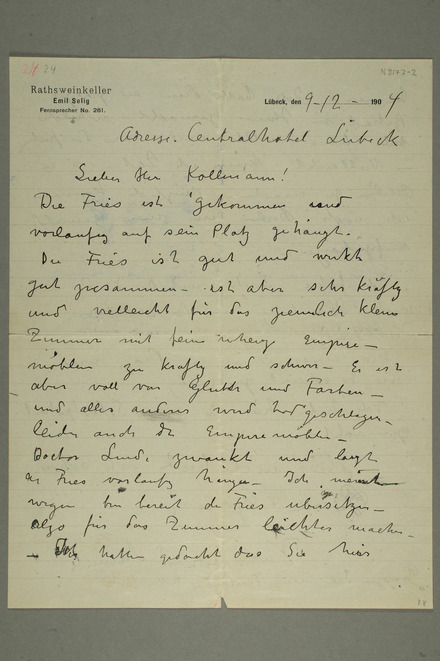 24
N 3172-2
Rathsweinkeller
Emil Selig
Fernsprecher No. 261.
Lübeck, den 9-12- 1904
Adresse. Centralhotel Lübeck
Lieber Herr Kollmann!
Die Fries ist gekommen und
vorlaufig auf sein Platz gehängt.
Die Fries ist gut und wirkt
gut zusammen - ist aber sehr kräftig
und vielleicht für das ziemlich klein
Zimmer mit fein Empire-
möblen zu kraftig und schwer - Es ist
aber voll von Glut und Farben -
und alles anders wird todgeschlagen -
leider auch die Empiremöblen -
Doctor Linde zwankt und laszt
die Fries vorlaufig hängen - Ich
wegen bin bereit die Fries ubersetzen -
also für das Zimmer leichter machen -
- Ich hatte gedacht das Sie hier